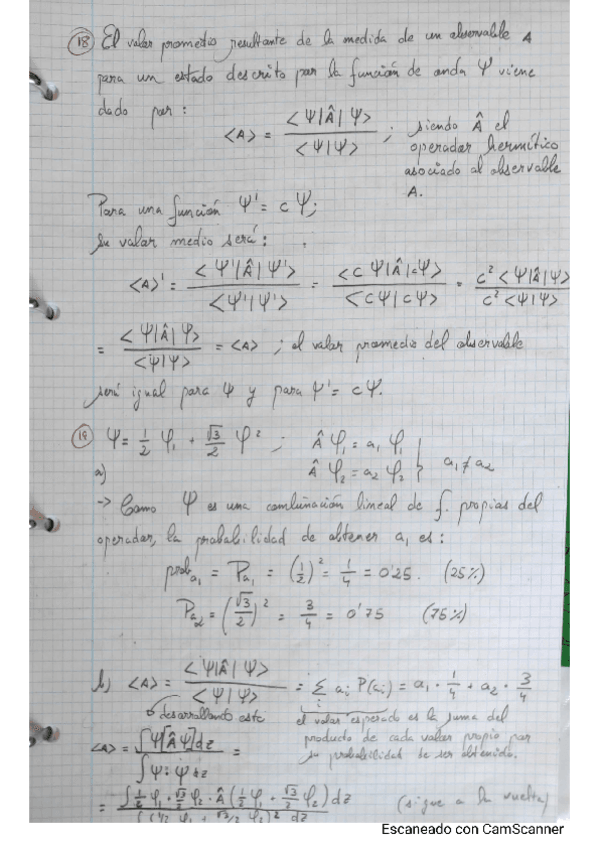 18 El valor promedio resultante de la medida de un observable A
para un estado descrito por la función de onda Ψ viene
dado por:
<A> = <Ψ|Â|Ψ> / <Ψ|Ψ> ; siendo Â el
operador hermítico
asociado al observable
A.
Para una función Ψ' = cΨ;
su valor medio será:
<A>' = <Ψ'|Â|Ψ'> / <Ψ'|Ψ'> = <cΨ|Â|cΨ> / <cΨ|cΨ> = c² <Ψ|Â|Ψ> / c² <Ψ|Ψ>
= <Ψ|Â|Ψ> / <Ψ|Ψ> = <A> ; el valor promedio del observable
será igual para Ψ y para Ψ' = cΨ.
19 Ψ = 1/2 φ₁ + √3/2 φ² ; Â φ₁ = a₁ φ₁
a) Â φ₂ = a₂ φ₂ } a₁ ≠ a₂
-> Como Ψ es una combinación lineal de f. propias del
operador, la probabilidad de obtener a₁ es:
prob a₁ = Pa₁ = (1/2)² = 1/4 = 0'25. (25%)
Pa₂ = (√3/2)² = 3/4 = 0'75 (75%)
b) <A> = <Ψ|Â|Ψ> / <Ψ|Ψ> = Σᵢ aᵢ P(aᵢ) = a₁ · 1/4 + a₂ · 3/4
desarrollando esto el valor esperado es la suma del
<A> = ∫Ψ[ÂΨ]dz / ∫Ψ·Ψ dz = producto de cada valor propio por
su probabilidad de ser obtenido.
= ∫ 1/2 φ₁ + √3/2 φ₂ · Â (1/2 φ₁ + √3/2 φ₂) dz (sigue a la vuelta)
∫ (1/2 φ₁ + √3/2 φ₂)² dz
Escaneado con CamScanner